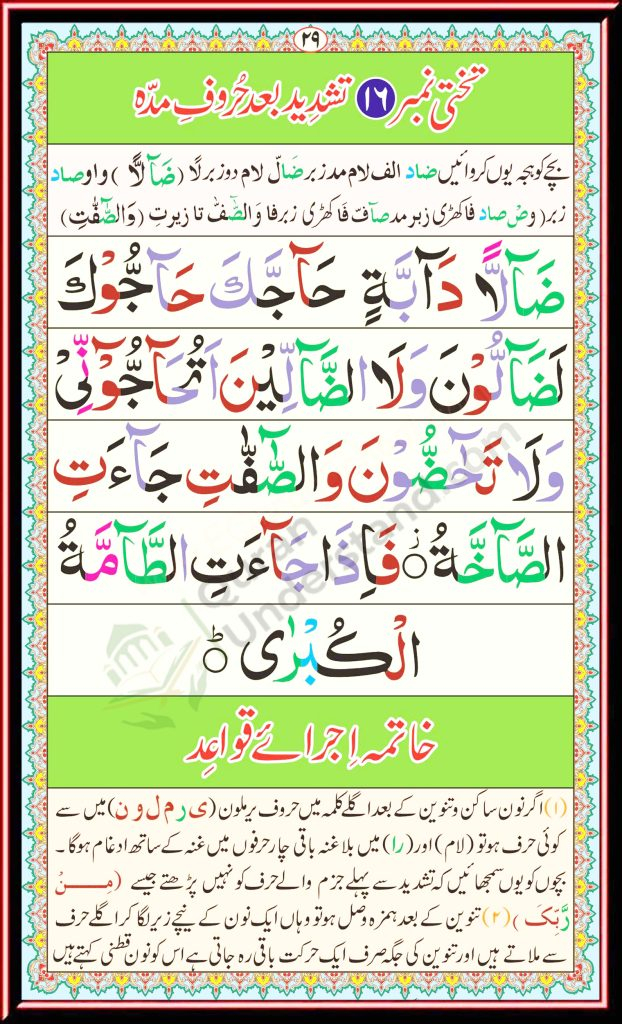 ۲۹
تختی نمبر ۱۶ تشدید بعد حُروفِ مدّہ
بچے کو ہجہ یوں کروائیں ضاد الف لام مد زبر ضَآلّ لام دو زبر لًا (ضَآلًّا) واو صاد
زبر (وصْ صاد فا کھڑی زبر مد صٓافّ فَا کھڑی زبر فا وَالصّٰٓفّٰ تا زیر تِ (وَالصّٰٓفّٰتِ)
ضَآلًّا دَآبَّةٍ حَآجَّكَ حَآجُّوْكَ
لَضَآلُّوْنَ وَلَا الضَّآلِّيْنَ اَتُحَآجُّوْٓنِّيْ
وَلَا تَحٰٓضُّوْنَ وَالصّٰٓفّٰتِ جَآءَتِ
الصَّآخَّةُ ۟ فَاِذَا جَآءَتِ الطَّآمَّةُ
الْكُبْرٰى ۟ؕ
خاتمہ اِجرائے قواعِد
(۱) اگر نون ساکن و تنوین کے بعد اگلے کلمہ میں حروف یرملون (ی ر م ل و ن) میں سے
کوئی حرف ہو تو (لام) اور (را) میں بلا غنہ باقی چار حرفوں میں غنہ کے ساتھ ادغام ہوگا۔
بچوں کو یوں سمجھائیں کہ تشدید سے پہلے جزم والے حرف کو نہیں پڑھتے جیسے (مِنْ
رَّبِّکَ) (۲) تنوین کے بعد ہمزہ وصل ہو تو وہاں ایک نون کے نیچے زیر لگا کر اگلے حرف
سے ملاتے ہیں اور تنوین کی جگہ صرف ایک حرکت باقی رہ جاتی ہے اس کو نون قطنی کہتے ہیں
Quran
Understand.com